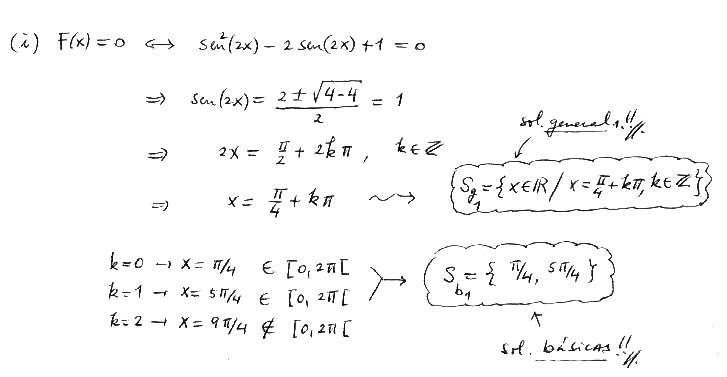 (i) F(x)=0 ⟺ sen²(2x) - 2 sen(2x) + 1 = 0
⟹ sen(2x) = (2 ± √(4-4))/2 = 1
⟹ 2x = π/2 + 2kπ, k∈ℤ
sol. general 1.!!
⟹ x = π/4 + kπ ⤳ S_{g_1} = {x∈ℝ / x = π/4 + kπ, k∈ℤ}
k=0 → x = π/4 ∈ [0, 2π[
k=1 → x = 5π/4 ∈ [0, 2π[
k=2 → x = 9π/4 ∉ [0, 2π[
→ S_{b_1} = {π/4, 5π/4}
sol. básicas!!